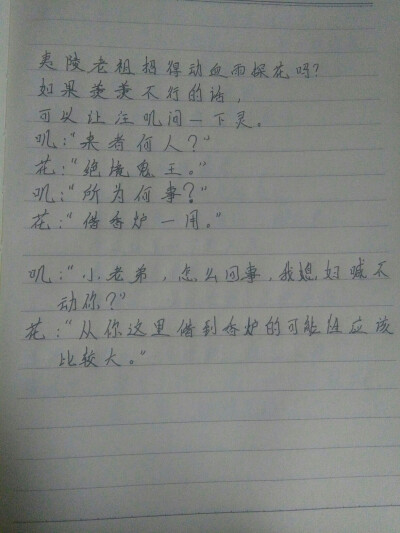 夷陵老祖招得动血雨探花吗？
如果羡羡不行的话，
可以让汪叽问一下灵。
叽：“来者何人？”
花：“绝境鬼王。”
叽：“所为何事？”
花：“借香炉一用。”
叽：“小老弟，怎么回事，我媳妇喊不
动你？”
花：“从你这里借到香炉的可能性应该
比较大。”